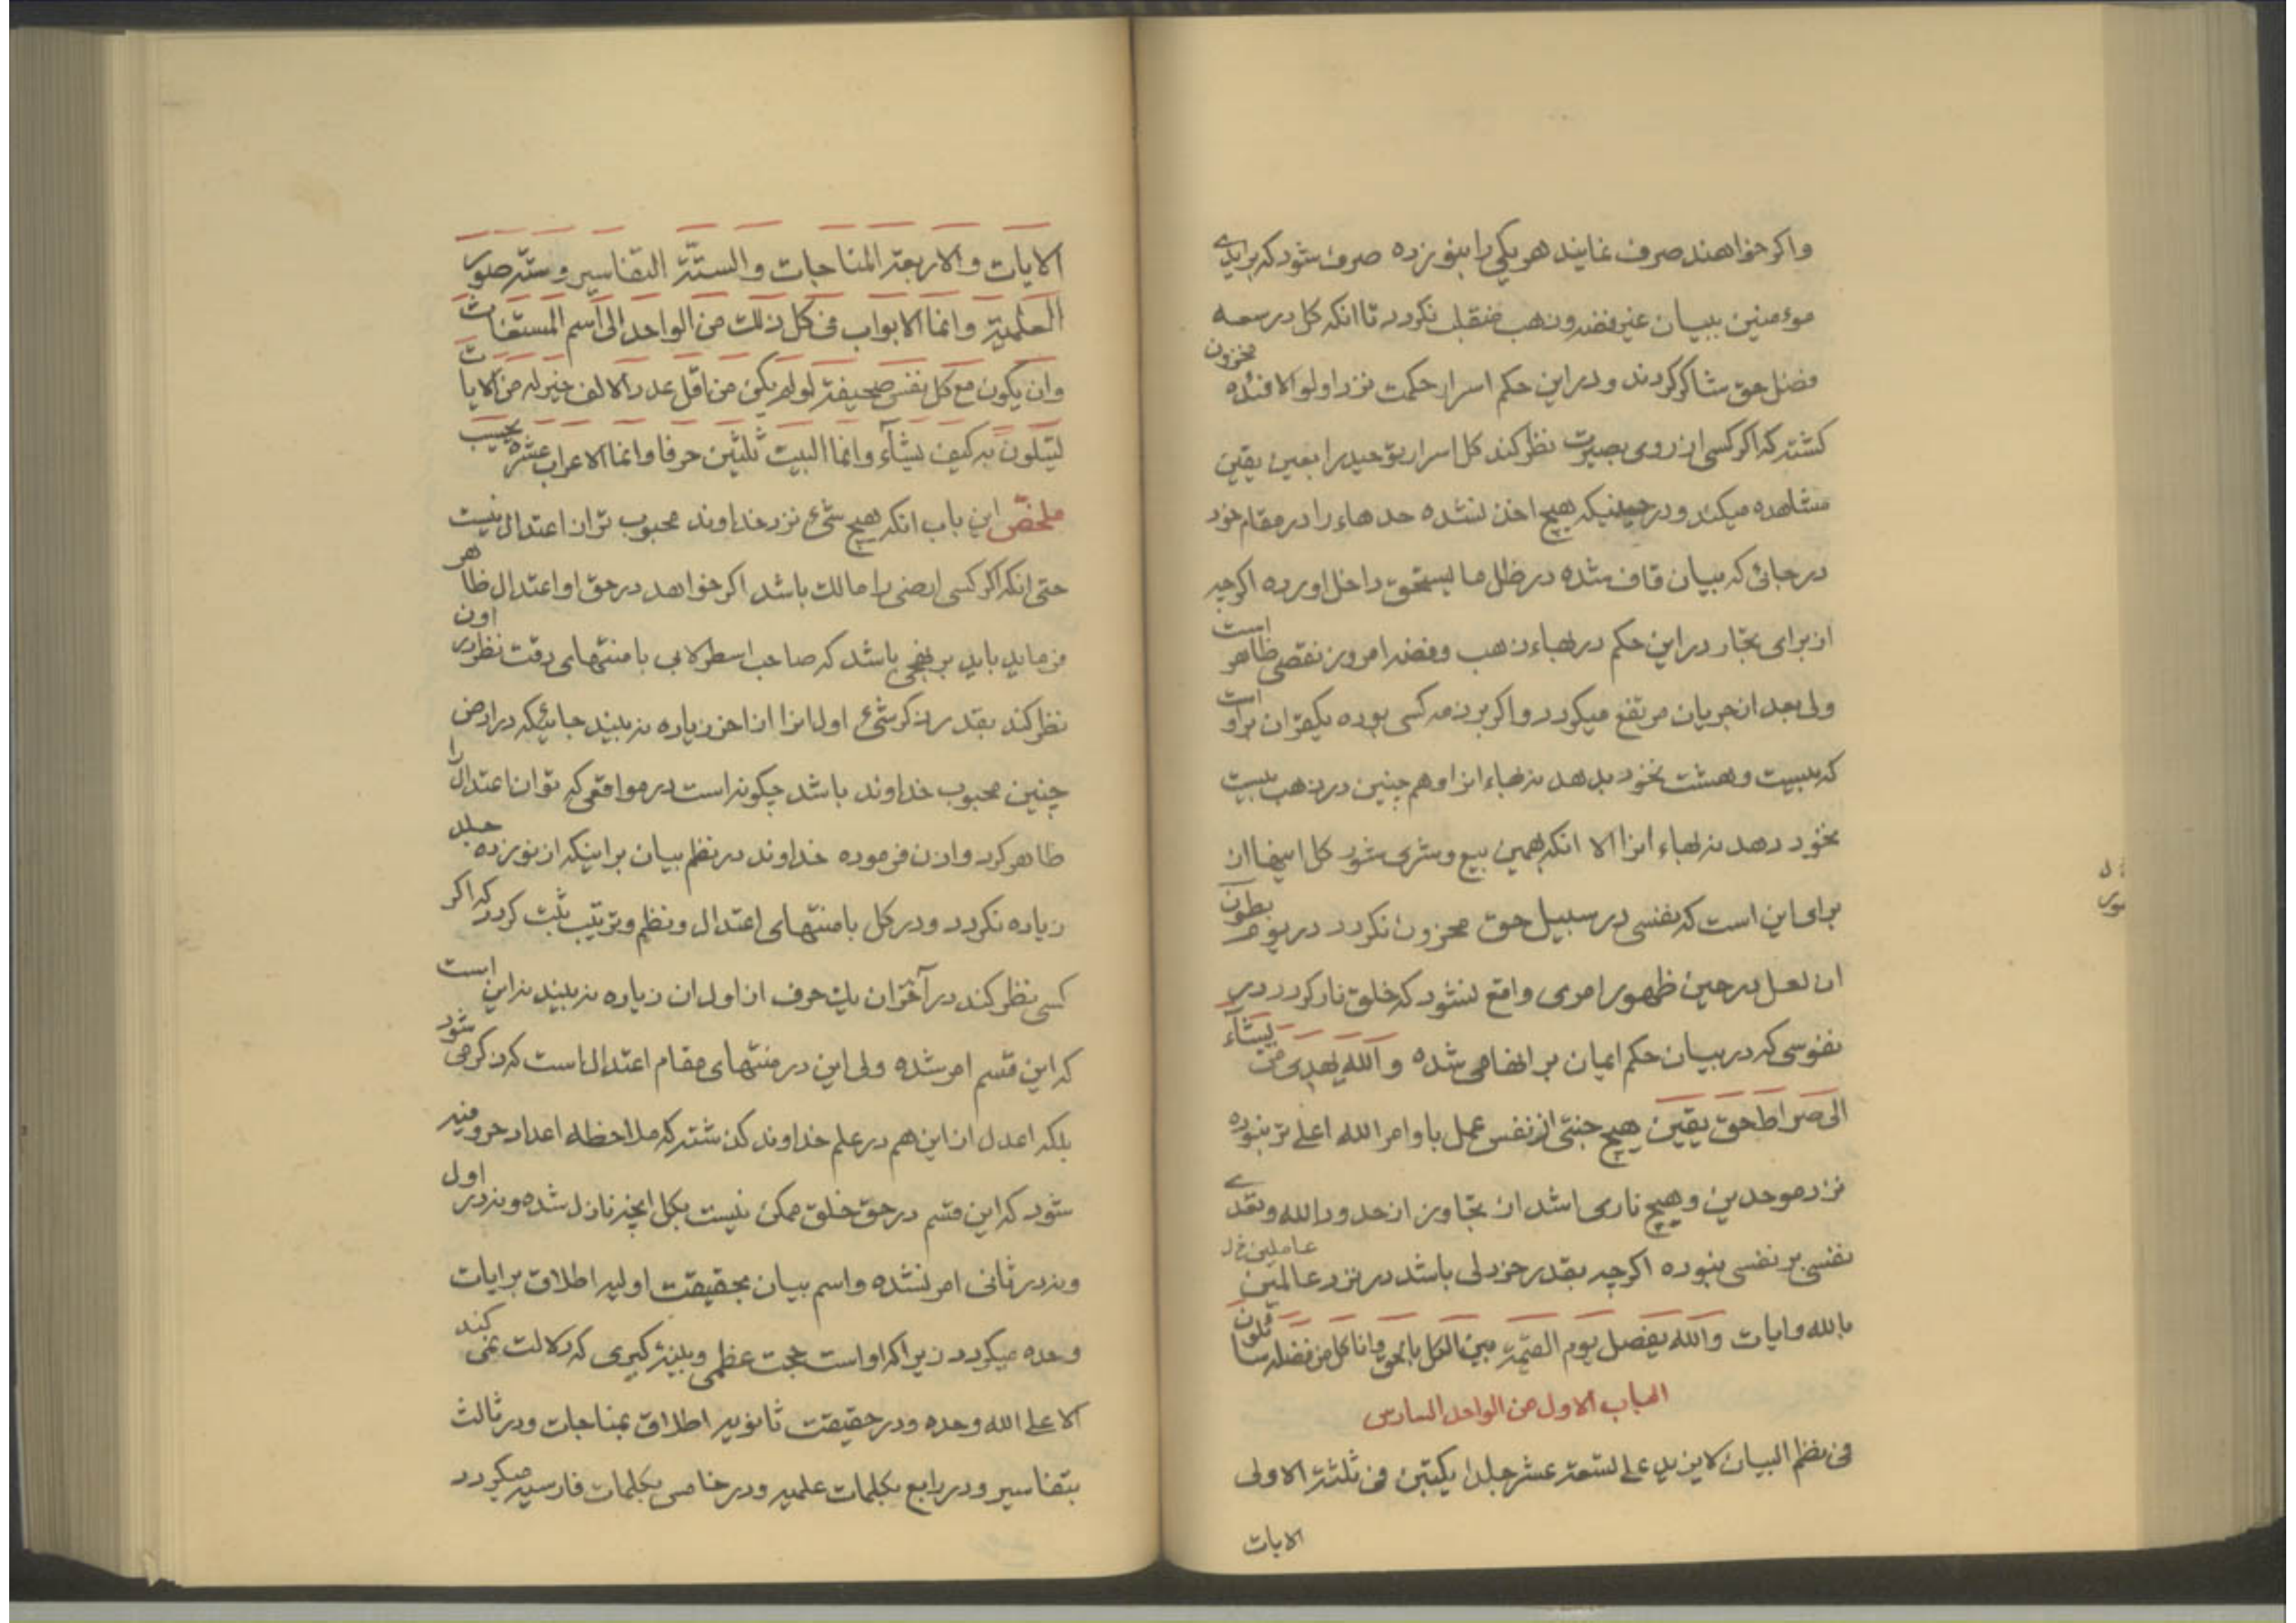 واکر خواهند صرف نمایند هر یکی را بنوزده صرف شود که برایدی
موءمنین ببیان غیر فضه و ذهب منقلب نکردد تا انکه کل در سعه
فضل حق شاکر کردند و در این حکم اسرار حکمت نزد اولو الافئده مخزون
کشته که اکر کسی از روی بصیرت نظر کند کل اسرار توحید را بعین یقین
مشاهده میکند و در حینیکه هیچ اخذ نشده حد هاء را در مقام خود
در جائی که بیان قاف شده در ظل ما یستحق داخل اورده اکرچه
از برای تجار در این حکم در بهاء ذهب و فضه امروز نقصی ظاهر است
ولی بعد از جریان مرتفع میکردد و اکر بر ذمه کسی بوده یکقران براو است
که ببیست و هشت نخود بدهد نه بهاء انرا و هم چنین در ذهب ببیست
نخود دهد نه بهاء انرا الا انکه بهمین بیع و شری شود کل اینها از
برای این است که نفسی در سبیل حق محزون نکردد در یوم بطون
ان لعل در حین ظهور امری واقع نشود که خلق نار کردد در
نفوسی که در بیان حکم ایمان بر انها می شده و الله یهدی من یشآء
الی صراط حق یقین هیچ جنتی از نفس عمل باوامر الله اعلی تر نبوده
نزد موحدین و هیچ ناری اشد از تجاوز از حدود الله و تعدی
نفسی بر نفسی نبوده اکرچه بقدر خردلی باشد در نزد عالمین عاملین خ ل
بالله وایات والله یفصل یوم القیمة بین الکل بالحق وانا کل من فضله سائلون
الباب الاول من الواحد السادس
فی نظم البیان لا یزید علی تسعة عشر جلدا یکتبن فی ثلثة الاولی
الایات
الایات والاربعة المناجات والستة التفاسیر وستة صور
العلمیة وانما الابواب فی کل ذلک من الواحد الی اسم المستغاث
وان یکون مع کل نفس صحیفة لو لم یکن من اقل عدد الالف خیر له من الایات
لیتلون به کیف یشآء وانما البیت ثلثین حرفا وانما الاعراب عشره یحسب
ملخص این باب انکه هیچ شیء نزد خداوند محبوب تر از اعتدال نیست
حتی انکه اکر کسی ارضی را مالک باشد اکر خواهد در حق او اعتدال ظاهر
فرماید باید بر نهجی باشد که صاحب اسطرلابی با منتهای دقت نظر در اون
نظر کند بقدر ذکر شیء اول انرا از اخر زیاده نه بیند جائیکه در ارض
چنین محبوب خداوند باشد چکونه است در مواقعی که توان اعتدال را
ظاهر کرد و اذن فرموده خداوند در نظم بیان بر اینکه از نوزده جلد
زیاده نکردد و در کل با منتهای اعتدال و نظم و ترتیب ثبت کردد که اکر
کسی نظر کند در آخر ان یک حرف از اول ان زیاده نه بیند نه این است
که این قسم امر شده ولی این در منتهای مقام اعتدال است که ذکر می شود
بلکه اعدل از این هم در علم خداوند کذشته که ملاحظه اعداد حروفیه
شود که این قسم در حق خلق ممکن نیست بکل انچه نازل شده و نه در اول
و نه در ثانی امر نشده و اسم بیان بحقیقت اولیه اطلاق بر ایات
وحده میکردد زیرا که او است حجت عظمی و بینه کبری که دلالت نمی کند
الا علی الله وحده و در حقیقت ثانویه اطلاق بمناجات و در ثالث
بتفاسیر و در رابع بکلمات علمیه و در خامس بکلمات فارسیه میکردد